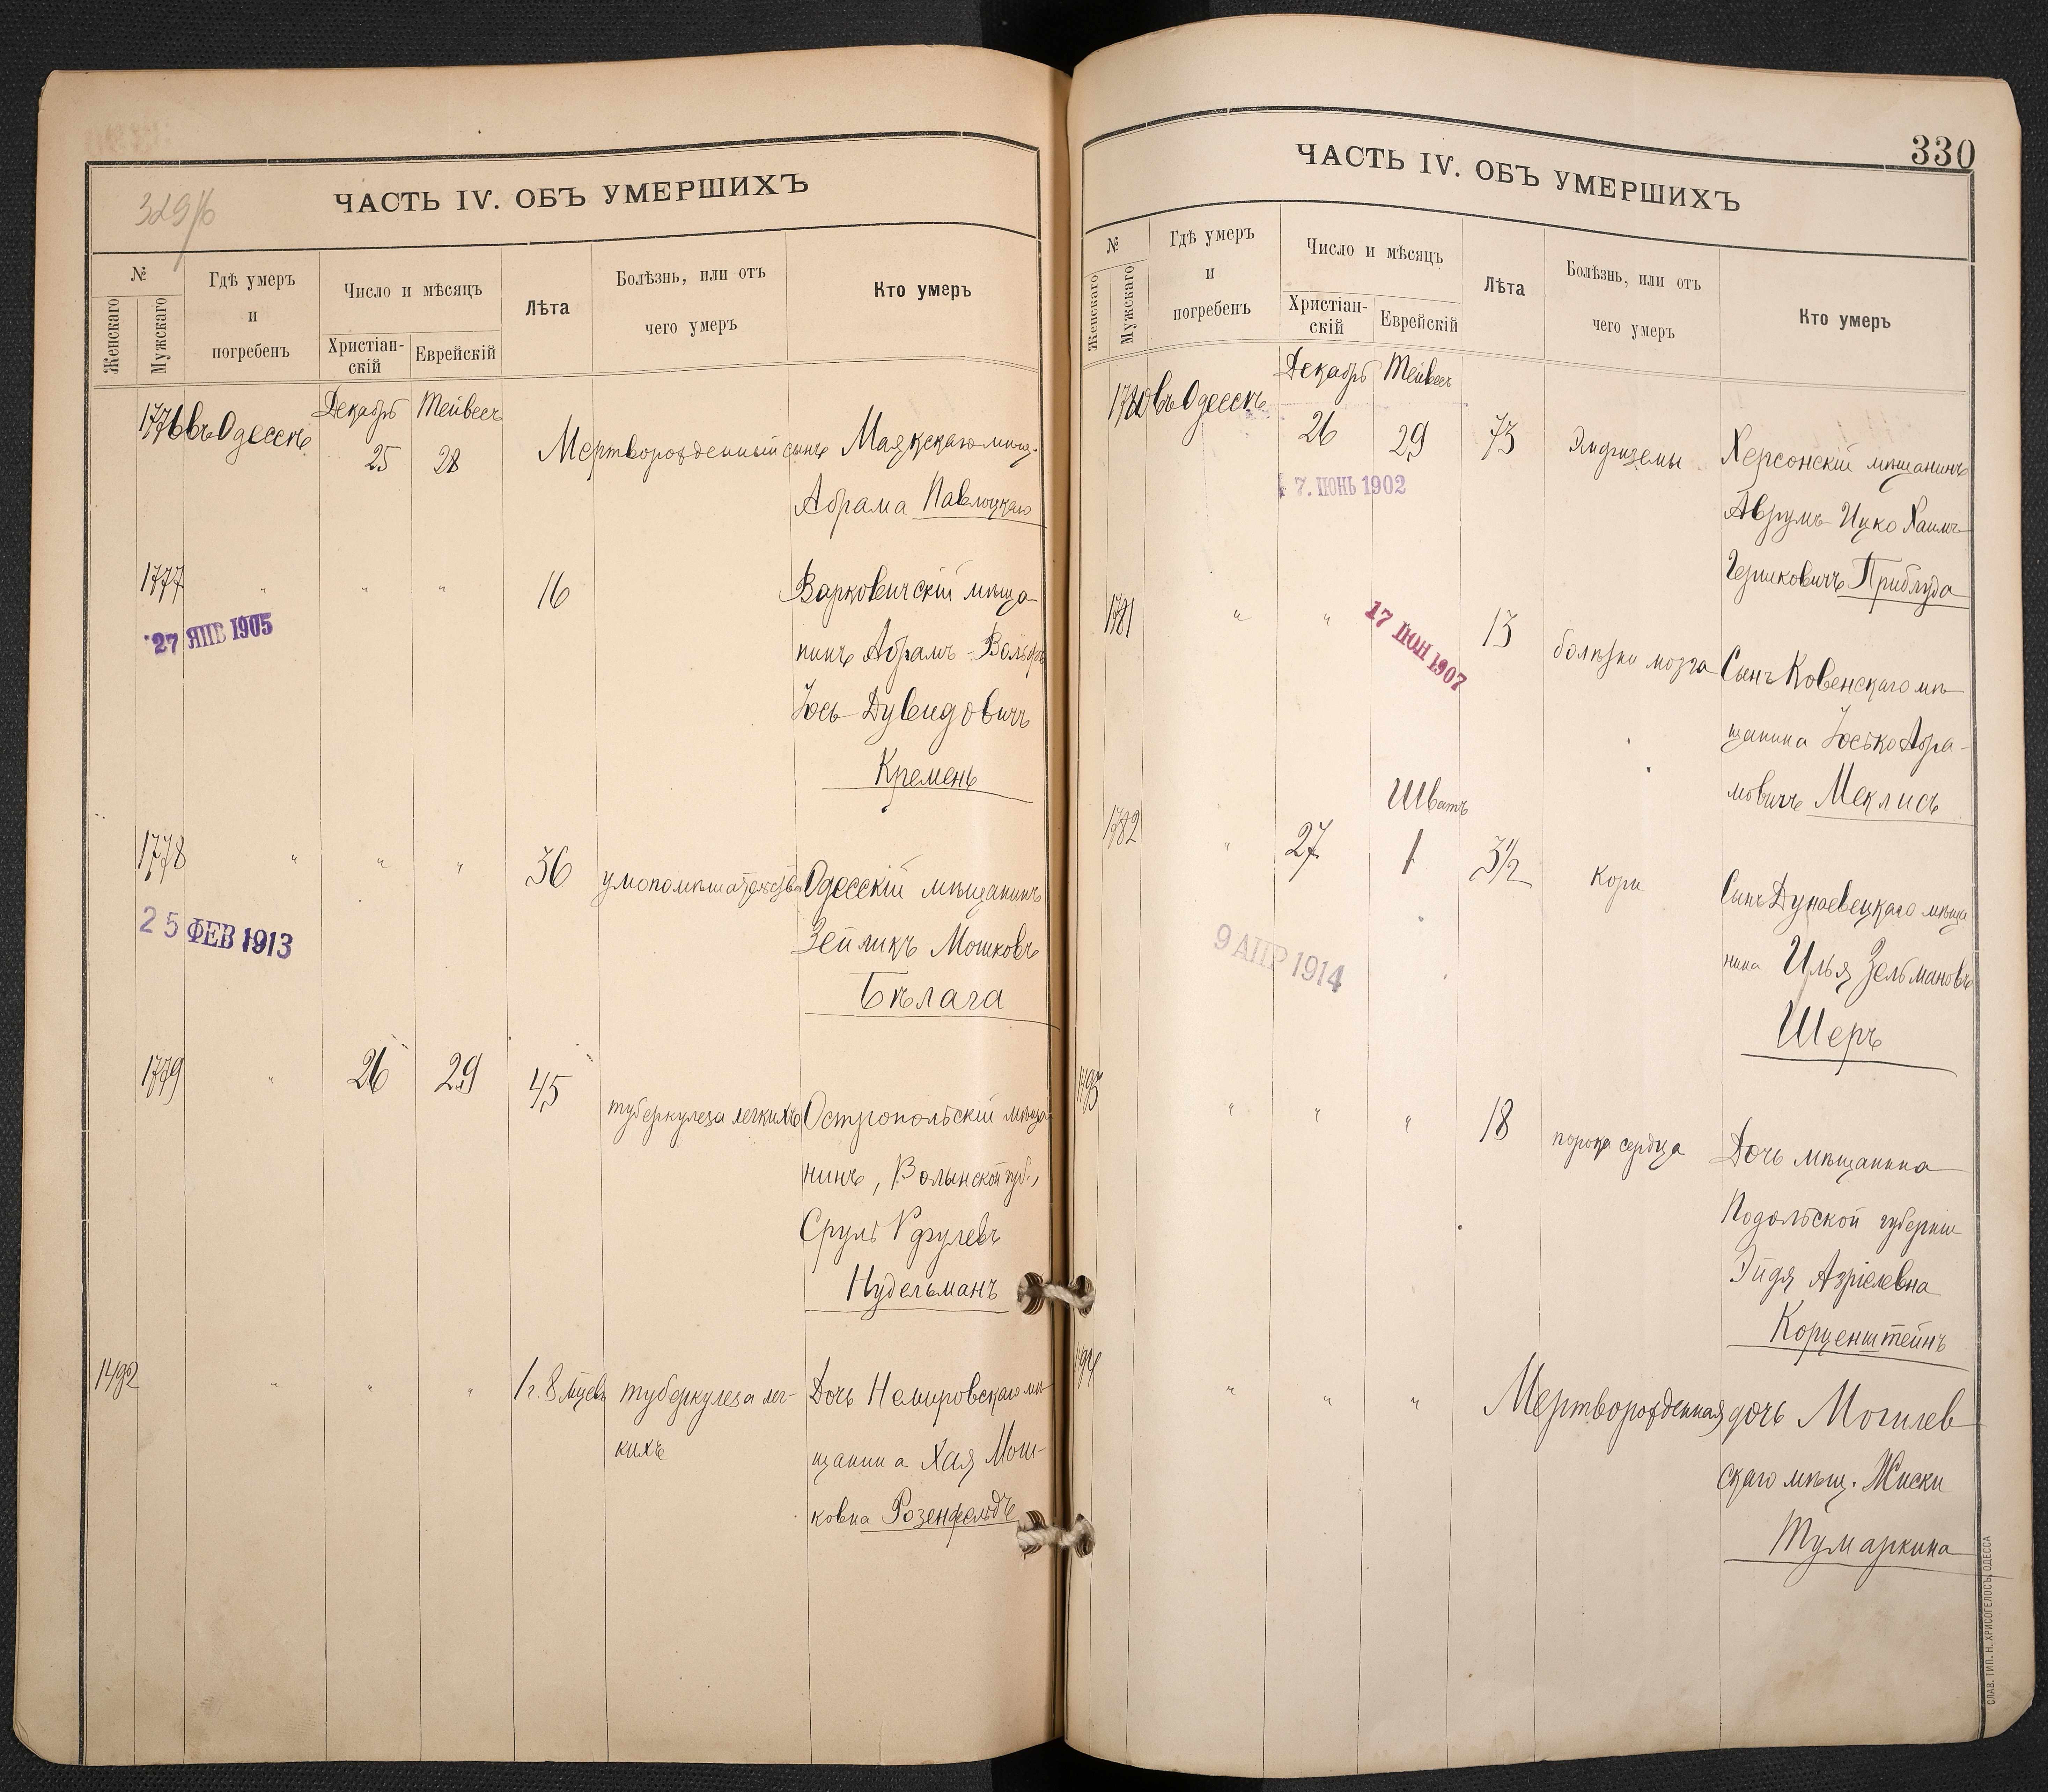 329/б
ЧАСТЬ IV. ОБЪ УМЕРШИХЪ
№
Женскаго
Мужскаго
Гдѣ умеръ
и
погребенъ
Число и мѣсяцъ
Христіан-
скій
Еврейскій
Лѣта
Болѣзнь, или отъ
чего умеръ
Кто умеръ
Декабрь Тейвесъ
1776 въ Одессѣ 25 28 Мертворожденный сынъ Маякскаго мѣщ.
Абрама Павлоцкаго
1777 " " " 16 Варковичскій мѣща-
27 ЯНВ 1905
нинъ Абрамъ-Вольфъ
Іось Дувидовичъ
Кремень
1778 " " " 36 умопомѣшательства Одесскій мѣщанинъ
25 ФЕВ 1913
Зейликъ Мошковъ
Бѣлага
1779 " 26 29 45 туберкулеза легкихъ Остропольскій мѣща-
нинъ, Волынской губ.,
Сруль
Нудельманъ
1492 " " " 1 г. 8 мцевъ туберкулеза лег- Дочь Немировскаго мѣ-
кихъ щанина Хая Мош-
ковна Розенфельдъ
330
ЧАСТЬ IV. ОБЪ УМЕРШИХЪ
№
Женскаго
Мужскаго
Гдѣ умеръ
и
погребенъ
Число и мѣсяцъ
Христіан-
скій
Еврейскій
Лѣта
Болѣзнь, или отъ
чего умеръ
Кто умеръ
Декабрь Тейвесъ
1780 въ Одессѣ 26 29 73 Эмфиземы Херсонскій мѣщанинъ
7. ІЮНЬ 1902
Аврумъ-Ицко Хаимъ-
Гершковичъ Приблуда
1781 " " 13 болѣзни мозга Сынъ Ковенскаго мѣ-
17 ІЮН 1907
щанина Іосько Абра-
мовичъ Меклисъ
Шватъ
1782 " 27 1 3½ кори Сынъ Дунаевецкаго мѣща-
9 АПР 1914
нина Илья Зельмановъ
Шеръ
1493 " " " 18 порока сердца Дочь мѣщанина
Подольской губерніи
Эйдя Азріелевна
Корценштейнъ
1494 " " " Мертворожденная дочь Могилев
скаго мѣщ. Жиски
Тумаркина
СЛАВ. ТИП. Н. ХРИСОГЕЛОСЪ, ОДЕССА